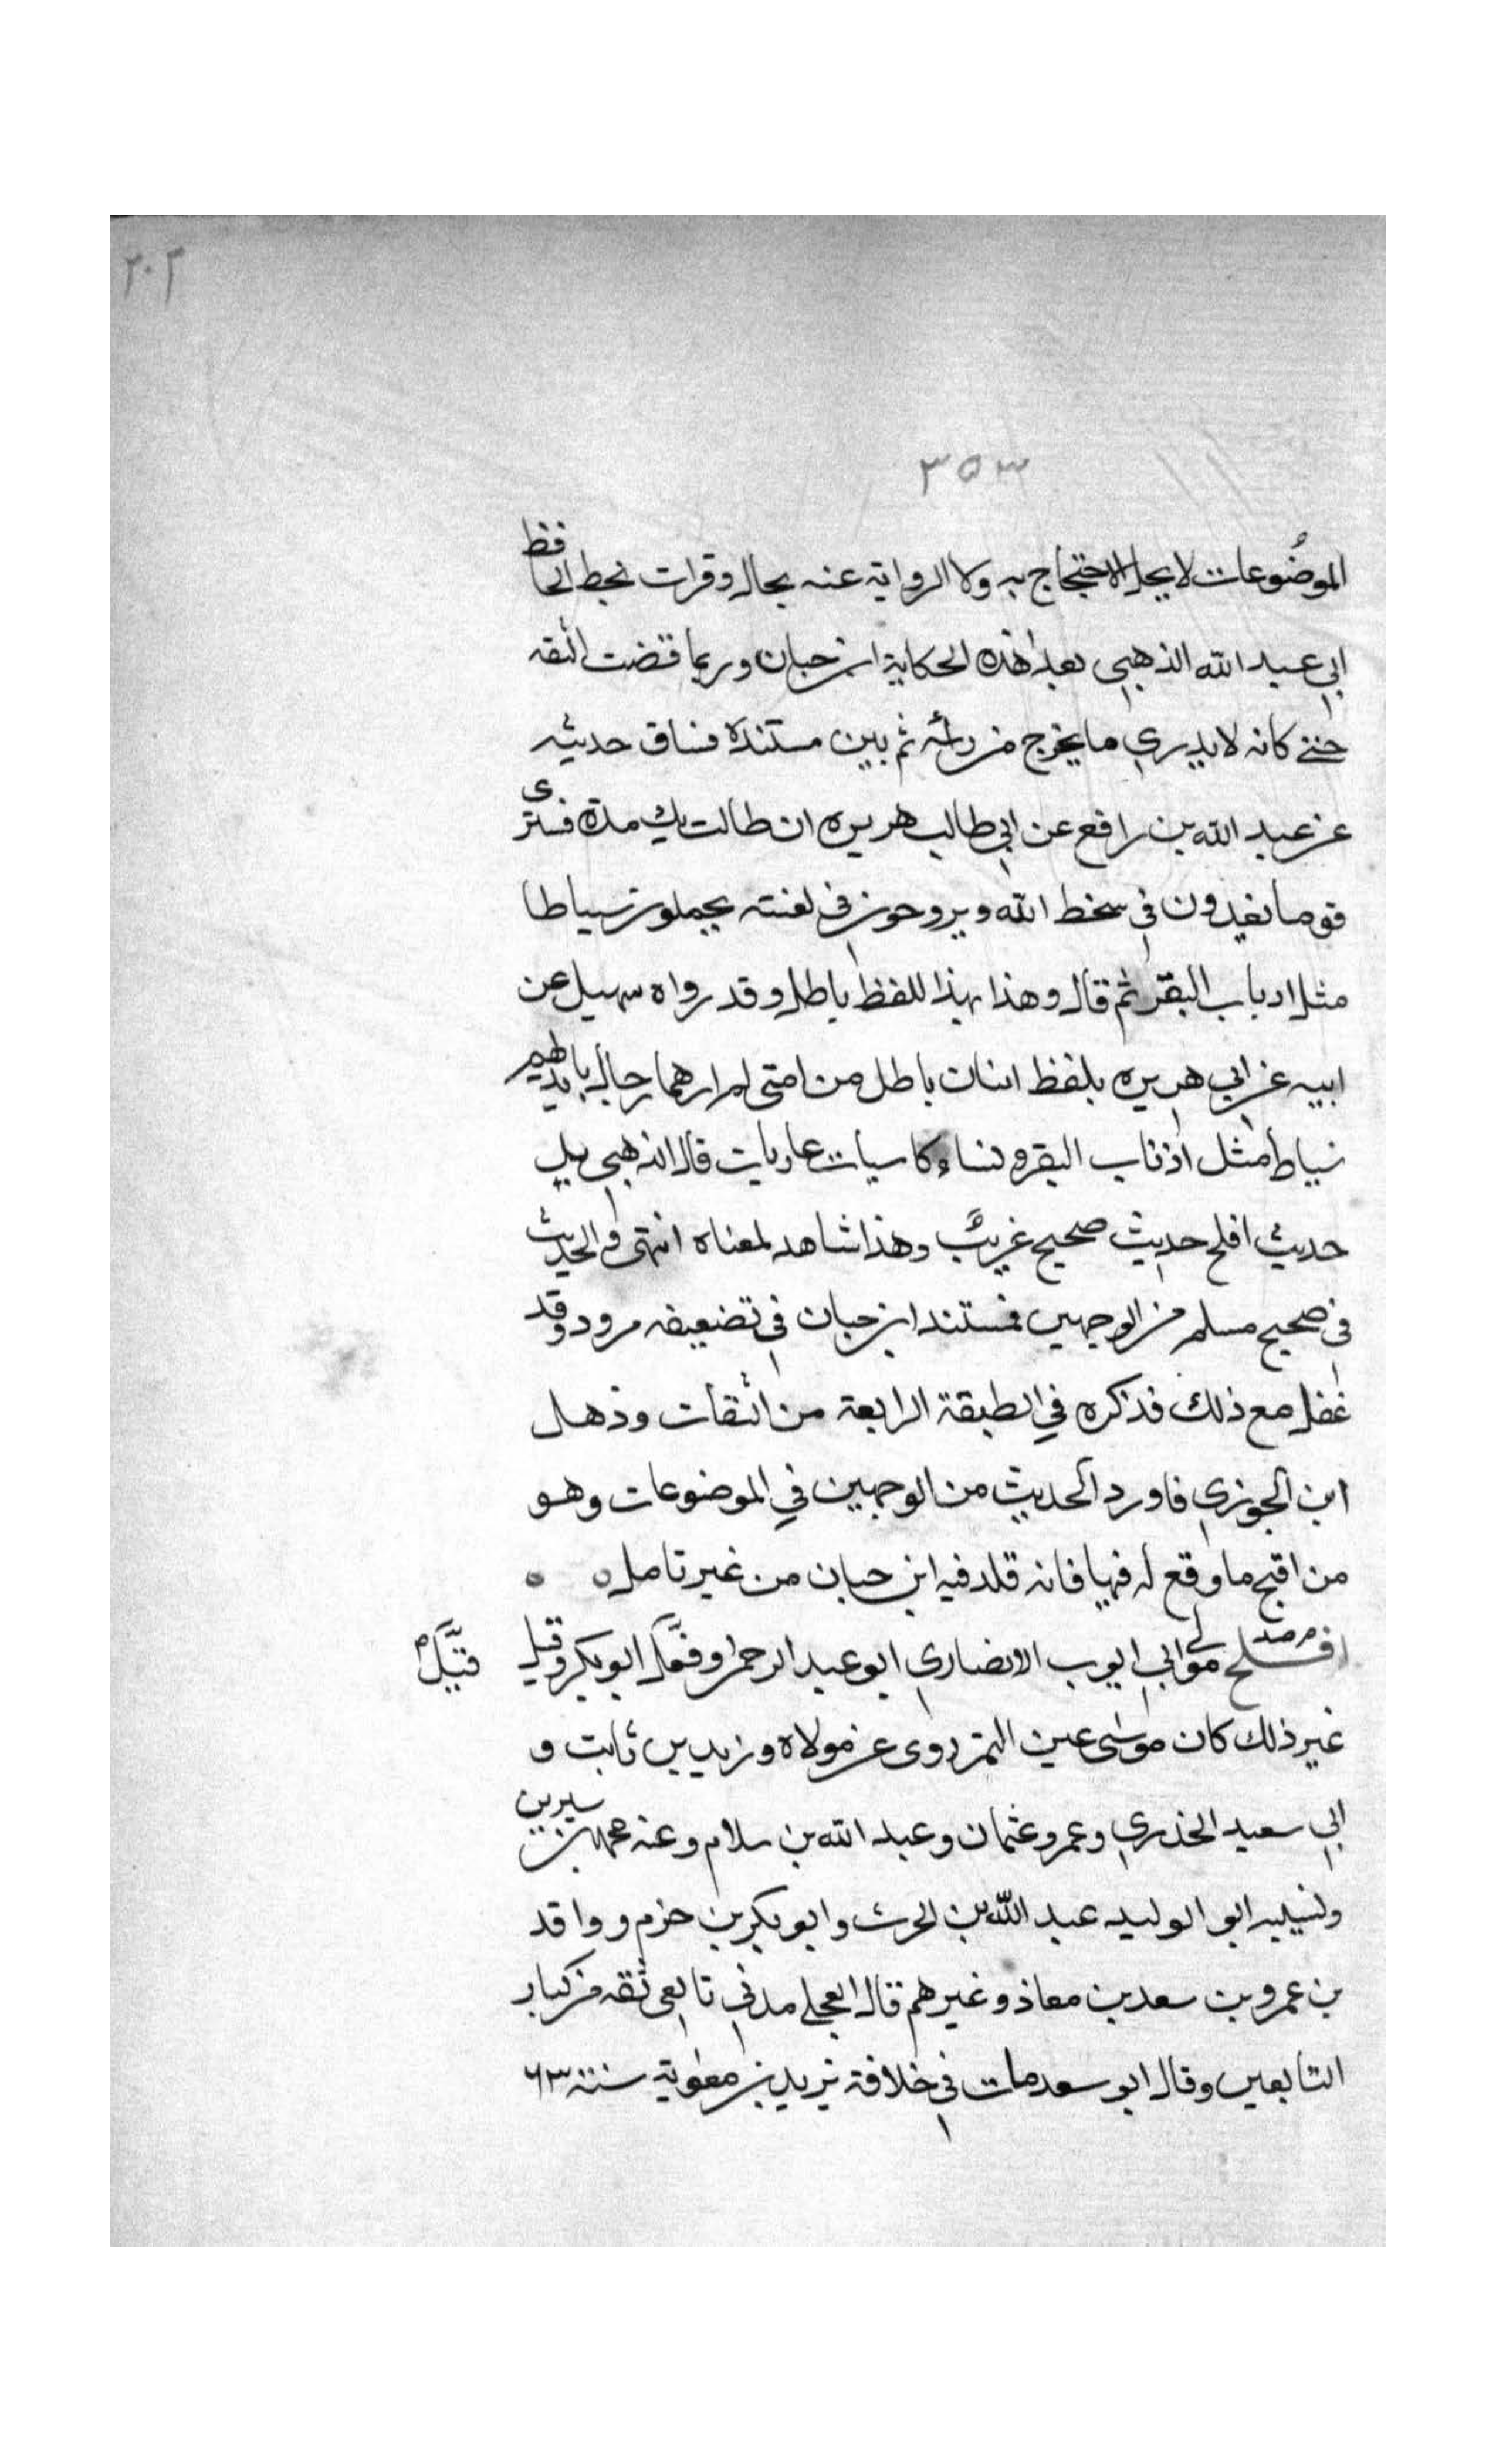 ٢٠٢
٣٥٣
الموضوعات لا يحل الاحتجاج به ولا الرواية عنه بحال وقرات بخط الحافظ
ابي عبد الله الذهبي بعد هذه الحكاية ابن حبان وربما قضت الثقه
حتى كانه لا يدري ما يخرج من رأسه ثم بين مستنده فساق حديثه
عن عبد الله بن رافع عن ابي طالب هريره ان طالت بك مدة فسترى
قوما يغدون في سخط الله ويروحون في لعنته يحملون سياطا
مثل ادباب البقر ثم قال وهذا بهذا للفظ باطل وقد رواه سهيل عن
ابيه عن ابي هريره بلفظ اثنان باطل من امتى لم ارهما رجال بايديهم
سياط مثل اذناب البقر ونساء كاسيات عاريات قال الذهبي بل
حديث افلح حديث صحيح غريب وهذا شاهد لمعناه انتهى والحديث
في صحيح مسلم من الوجهين فمستند ابن حبان في تضعيفه مرود وقد
غفل مع ذلك فذكره في الطبقة الرابعة من الثقات وذهل
ابن الجوزي فاورد الحديث من الوجهين في الموضوعات وهو
من اقبح ما وقع له فيها فانه قلد فيه ابن حبان من غير تامل ه ه
افلح مولى ابي ايوب الانصاري ابو عبد الرحمن وفقال ابو بكر وقيل
غير ذلك كان موسى عين التمر روى عن مولاه وزيد بن ثابت و
ابي سعيد الخذري وعمر وعثمان وعبد الله بن سلام وعنه محمد بن سيرين
ونسيبه ابو الوليد عبد الله بن الحرث وابو بكر بن حزم وواقد
بن عمرو بن سعد بن معاذ وغيرهم قال العجلي مدني تابعي ثقه من كبار
التابعين وقال ابو سعد مات في خلافة يزيد بن معوية سنة ٦٣